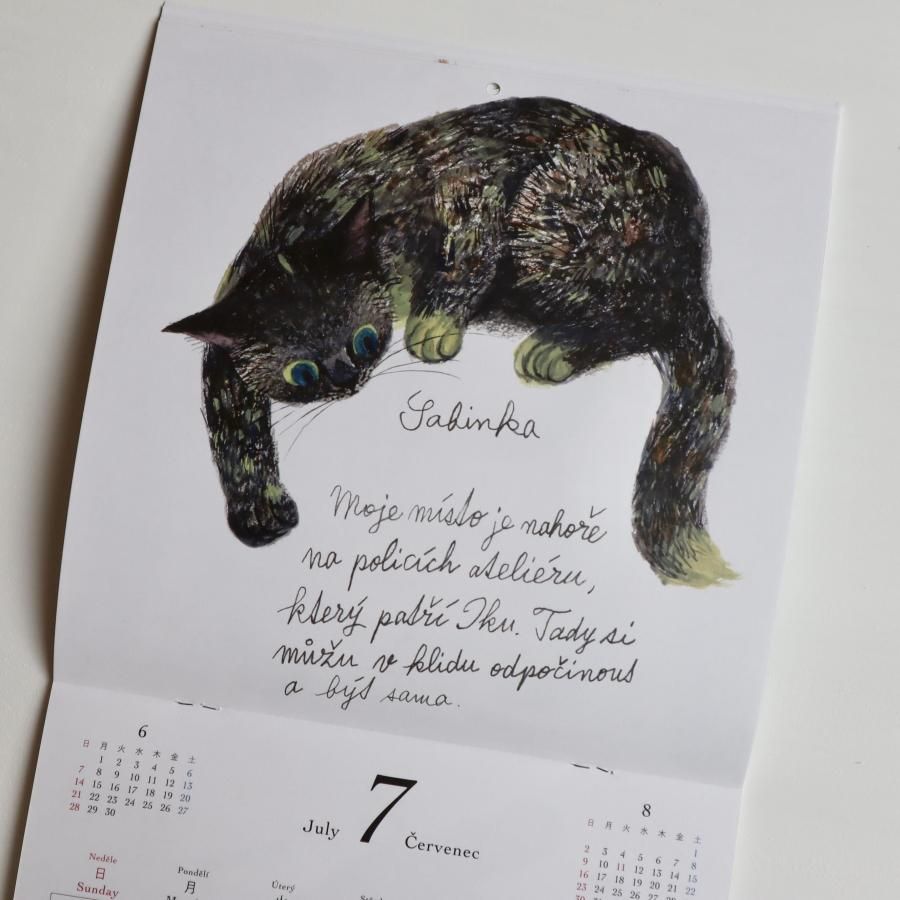 Sabinka
Moje místo je nahoře
na policích ateliéru,
který patří Iku. Tady si
můžu v klidu odpočinout
a být sama.
6
日 月 火 水 木 金 土
1 2 3 4 5 6
7 8 9 10 11 12 13
14 15 16 17 18 19 20
21 22 23 24 25 26 27
28 29 30
July 7 Červenec
8
日 月 火 水 木 金 土
1
2 3 4 5 6 7 8
9 10 11 12 13 14 15
16 17 18 19 20 21 22
23 24 25 26 27 28 29
Neděle
日
Sunday
Pondělí
月
Úterý